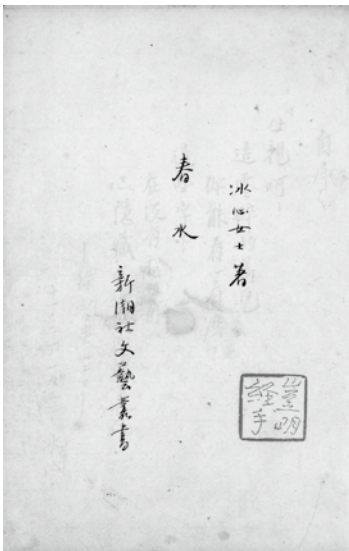 冰心女士著
春水
新潮社文藝叢書
豈明
經手